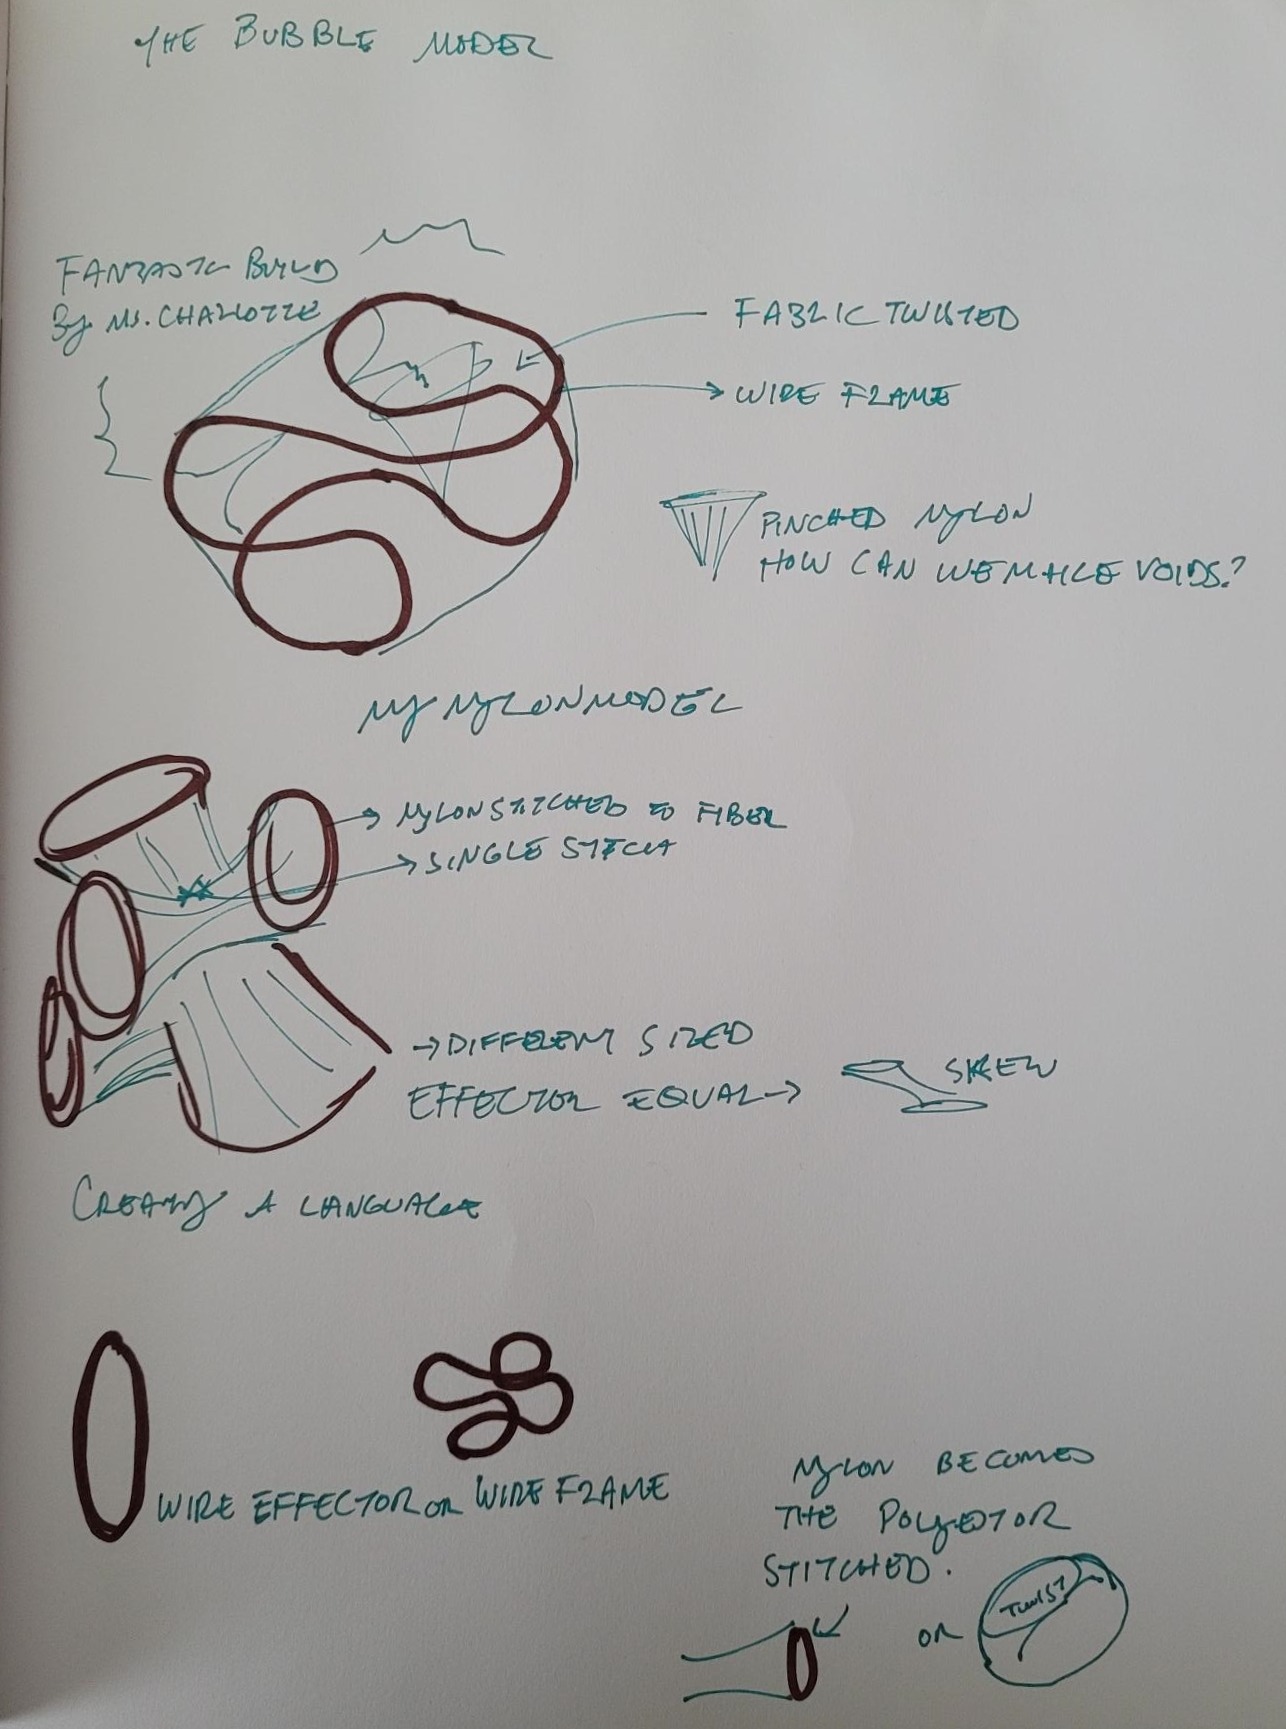 THE BUBBLE MODEL
FANTASTIC BUILD
By MS. CHARLOTTE
FABRIC TWISTED
WIRE FRAME
PINCHED NYLON
HOW CAN WE MAKE VOIDS?
MY NYLON MODEL
NYLON STITCHED TO FIBER
SINGLE STITCH
DIFFERENT SIZED
EFFECTOR EQUAL
SKEW
CREATING A LANGUAGE
WIRE EFFECTOR OR WIRE FRAME
NYLON BECOMES
THE
STITCHED.
OR
TWIST